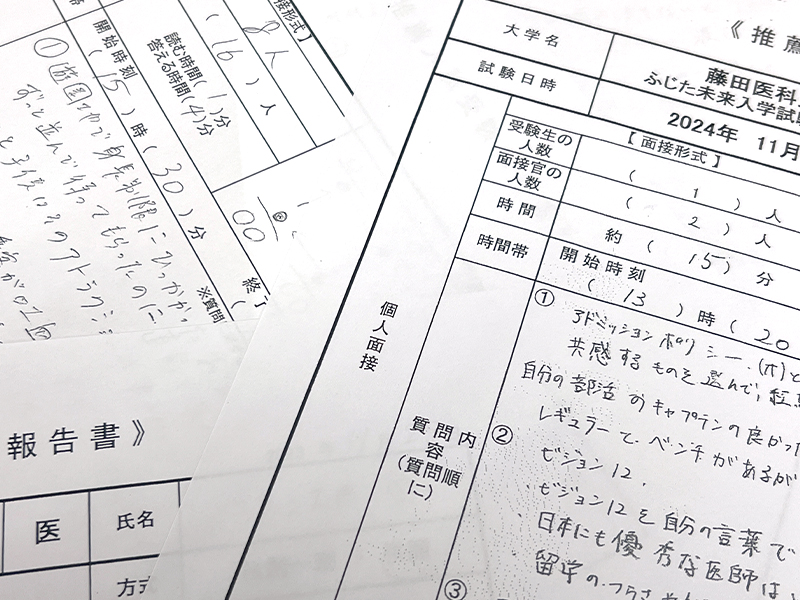 《推薦
大学名
藤田医科
ふじた未来入学試験
試験日時
2024年 11月
個人面接
受験生の人数
【面接形式】
( 1 ) 人
面接官の人数
( 2 ) 人
時間
約 ( 15 ) 分
時間帯
開始時刻
( 13 ) 時 ( 20
質問内容
(質問順に)
① アドミッションポリシー.(木)と
共感するものを選んで,
自分の部活のキャプテンの良かった
レギュラーで、ベンチがあるが
② ビジョン12,
・ビジョン12を自分の言葉で
日本にも優秀な医師は
留学の
③
接形式】
8 人
( 16 ) 人
読む時間( 1 )分
答える時間( 4 )分
開始時刻
( 15 ) 時 ( 30 ) 分
00
終了
(
※質問
① 遊園地で身長制限にひっかか
ずっと並んで待ってもらったのに
報告書》
医
氏名
方式